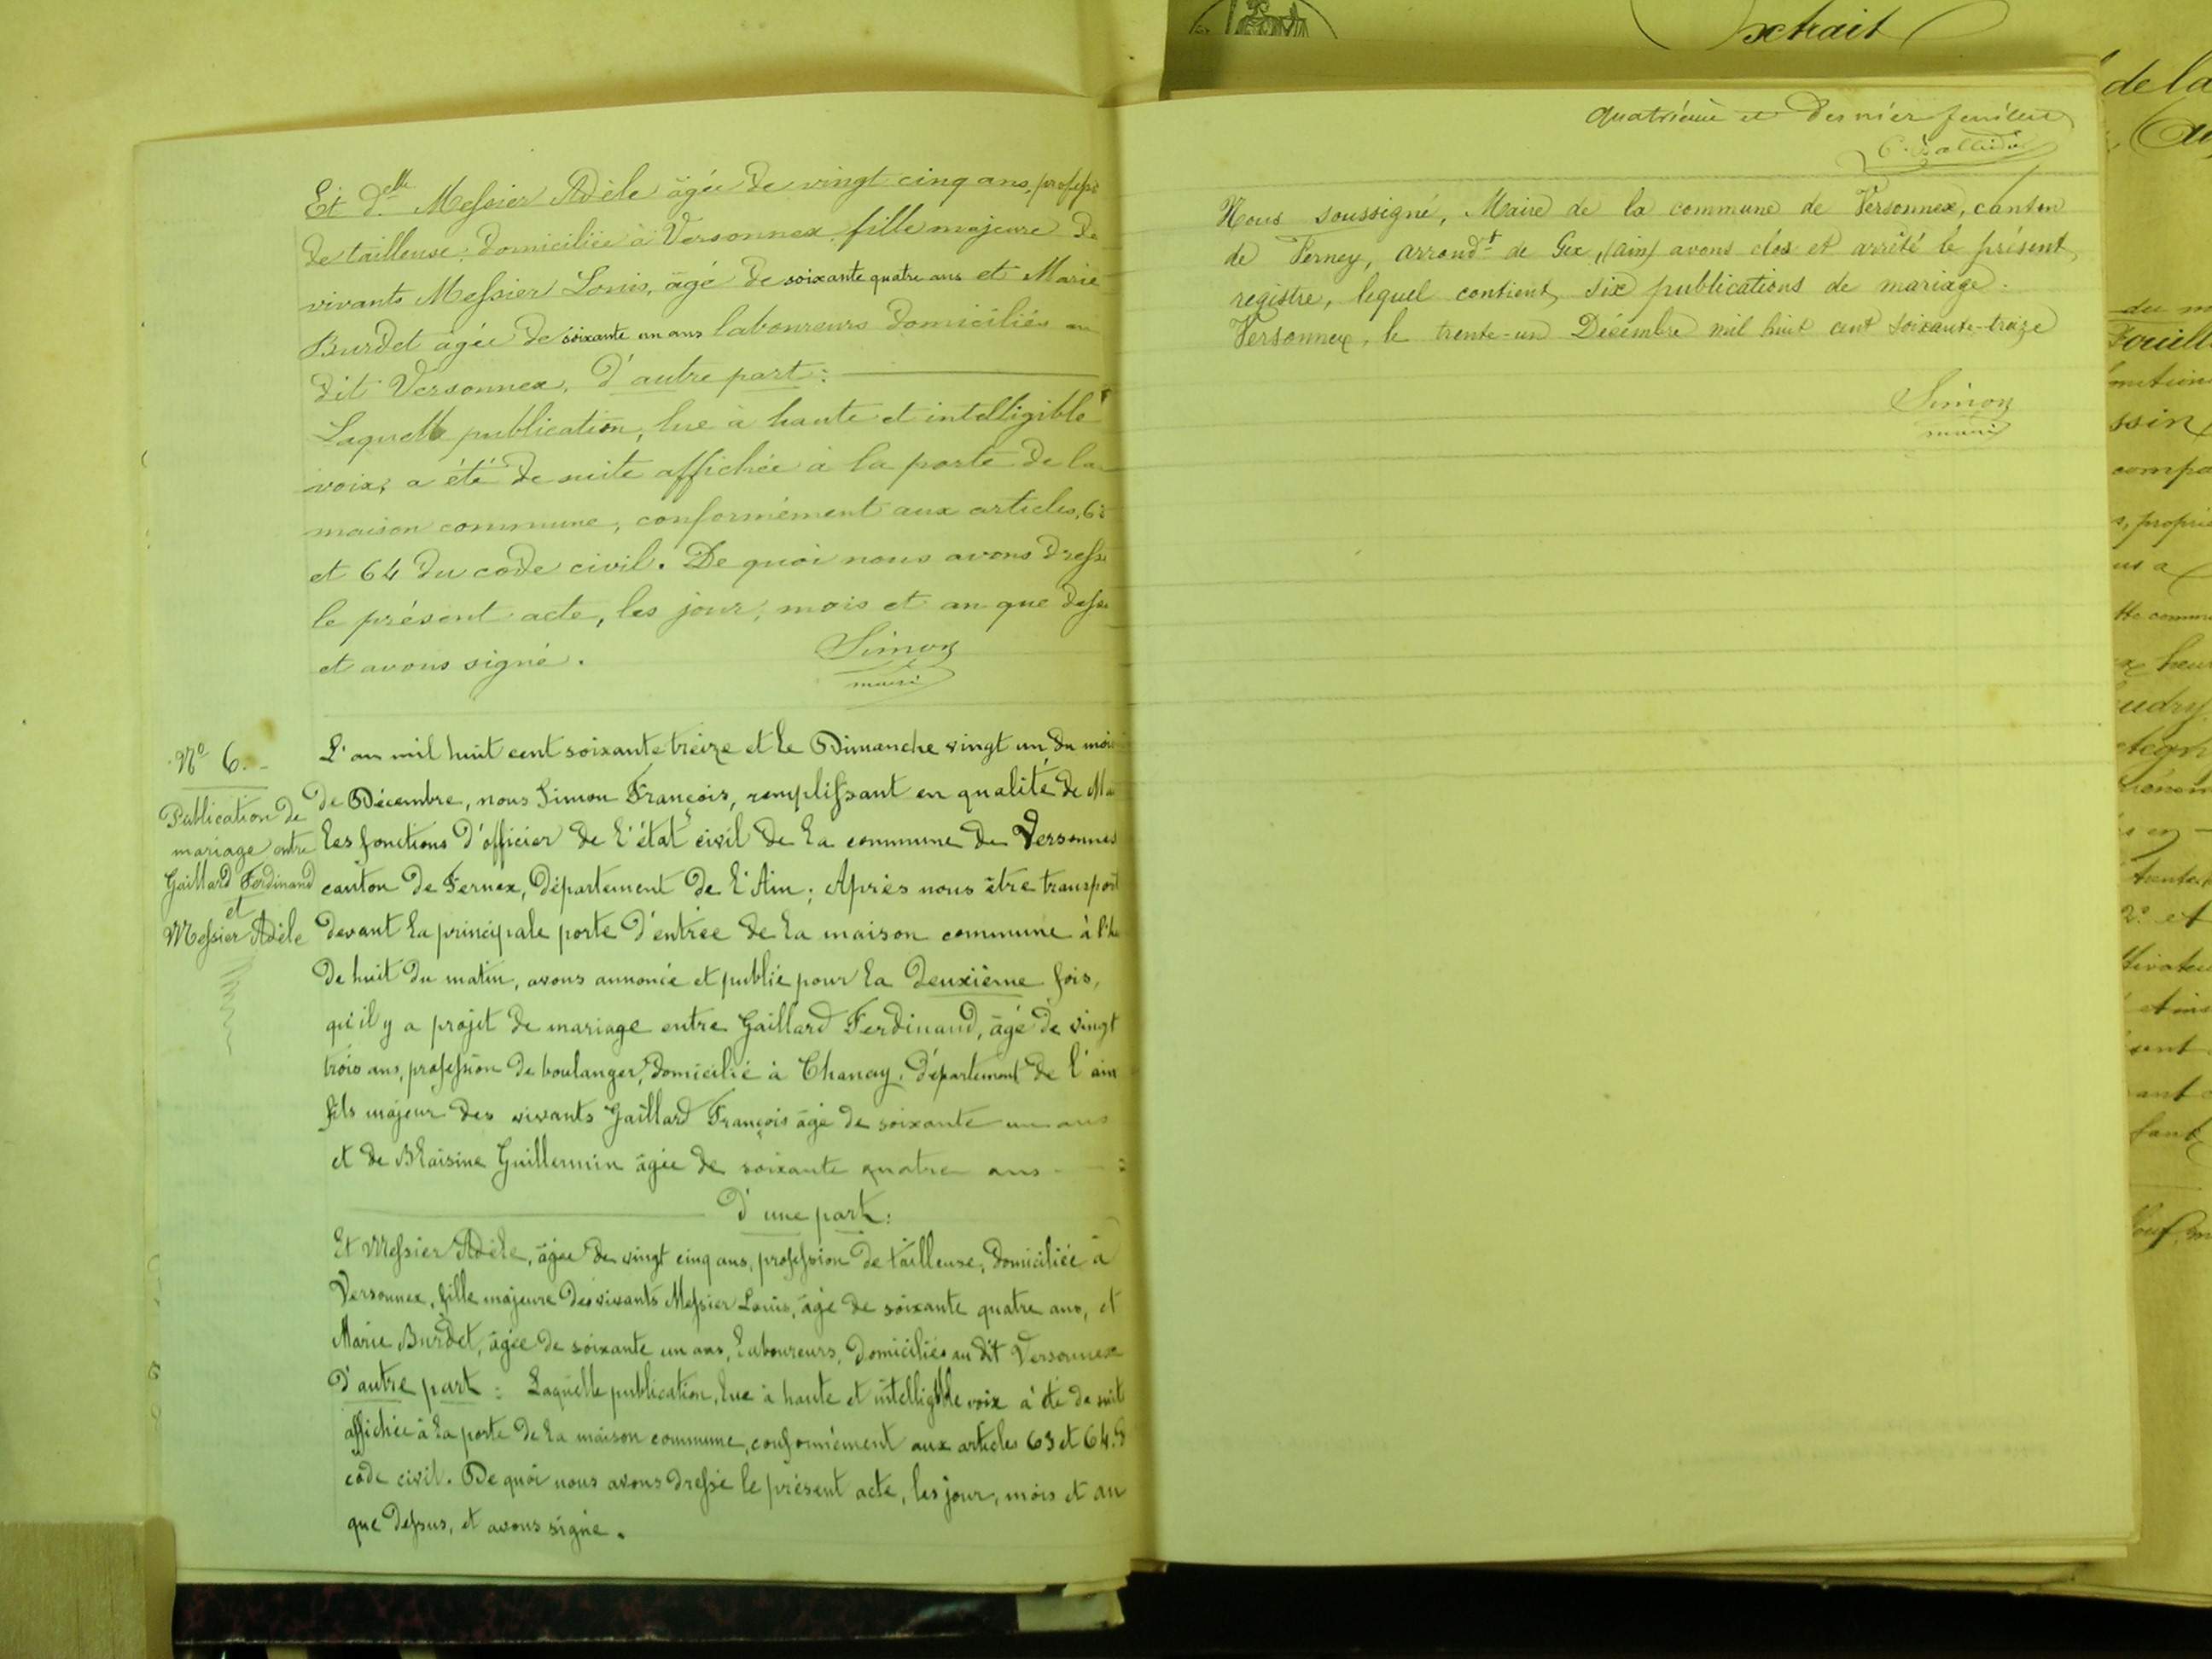 Et d.elle Messier Adèle âgée de vingt cinq ans, professi
de tailleuse, domiciliée à Versonnex, fille majeure de
vivants Messier Louis, âgé de soixante quatre ans et Marie
Burdet agée de soixante un ans laboureurs domiciliés au
dit Versonnex, d'autre part:
Laquelle publication, lue à haute et intelligible
voix, a été de suite affichée à la porte de la
maison commune, conformément aux articles, 63
et 64 du code civil. De quoi nous avons dressé
le présent acte, les jour, mois et an que dessu
et avons signé.
Simon
maire
Nº 6.
Publication de
mariage entre
Gaillard Ferdinand
et
Messier Adèle
L'an mil huit cent soixante treize et le Dimanche vingt un du mois
de Décembre, nous Simon François, remplissant en qualité de Ma
les fonctions d'officier de l'état civil de la commune de Versonnex
canton de Fernex, département de l'Ain; Après nous être transport
devant la principale porte d'entrée de la maison commune à l'he
de huit du matin, avons annoncé et publié pour la deuxième fois,
qu'il y a projet de mariage entre Gaillard Ferdinand, âgé de vingt
trois ans, profession de boulanger, domicilié à Chanay, département de l'ain
fils majeur des vivants Gaillard François âgé de soixante un ans
et de Blaisine Guillermin âgée de soixante quatre ans
d'une part:
Et Messier Adèle, âgée de vingt cinq ans, profession de tailleuse, domiciliée à
Versonnex, fille majeure des vivants Messier Louis, âgé de soixante quatre ans, et
Marie Burdet, âgée de soixante un ans, laboureurs, domiciliés au dit Versonnex
d'autre part: Laquelle publication, lue à haute et intelligible voix a été de suite
affichée à la porte de la maison commune, conformément aux articles 63 et 64 d
code civil. De quoi nous avons dressé le présent acte, les jour, mois et an
que dessus, et avons signé.
Extrait
quatrième et dernier feuillet
Nous soussigné, Maire de la commune de Versonnex, canton
de Ferney, arrondt de Gex, (ain) avons clos et arrêté le présent
registre, lequel contient six publications de mariage.
Versonnex, le trente-un Décembre mil huit cent soixante-treize
Simon
maire
de la
du m
ssin
compa
s, proprié
us a
tte commu
udry
2º et
sent
ant